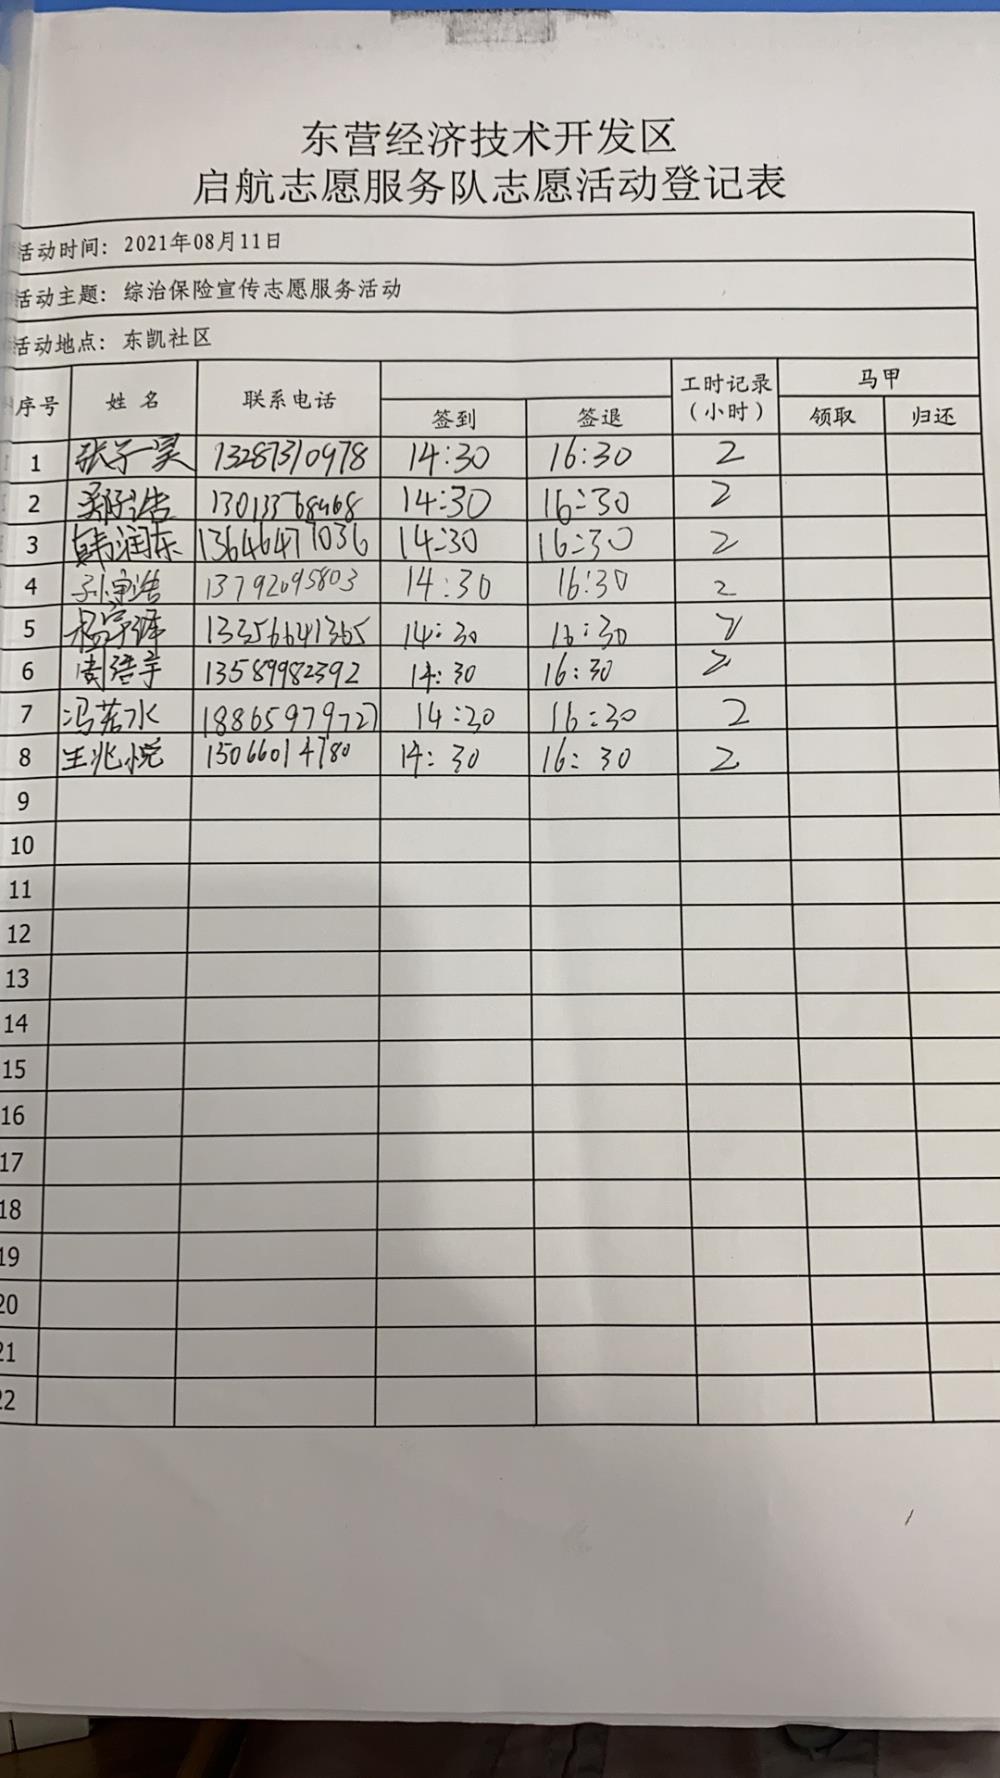 东营经济技术开发区
启航志愿服务队志愿活动登记表
活动时间：2021年08月11日
活动主题：综治保险宣传志愿服务活动
活动地点：东凯社区
序号 姓名 联系电话 签到 签退 工时记录（小时） 马甲 领取 归还
1 张子昊 13287310978 14:30 16:30 2
2 浩 14:30 16:30 2
3 韩润东 13646471036 14:30 16:30 2
4 孙浩 13792095803 14:30 16:30 2
5 杨宇 13356641365 14:30 16:30 2
6 周浩宇 13589982392 14:30 16:30 2
7 冯若水 18865979727 14:30 16:30 2
8 王兆悦 15066014780 14:30 16:30 2
9
10
11
12
13
14
15
16
17
18
19
20
21
22